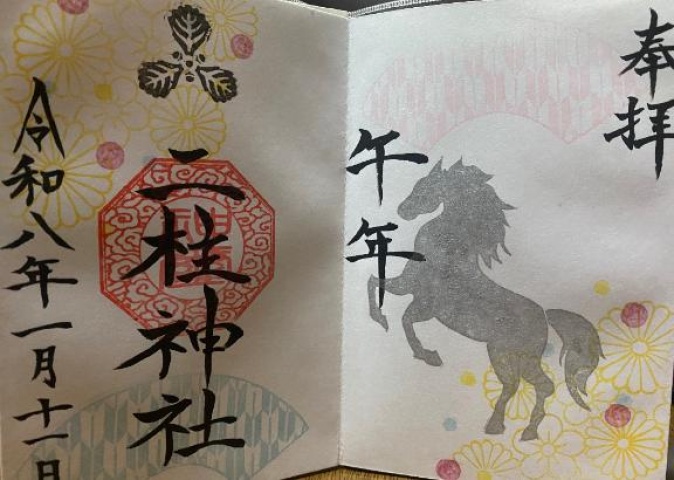 奉拝
午年
二柱神社
令和八年一月十一日